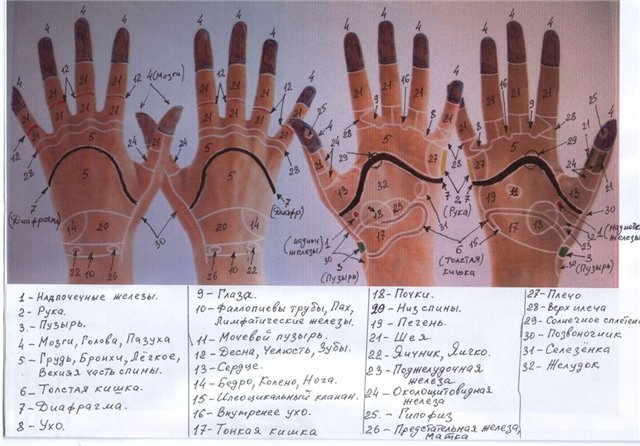 4 4 4 4 4 4 4 4 4 4 4 4
12 4 (Мозги) 12
21 21 21 21 21 21 21 21
16 9 8 16 9 8 25
12 12 24 24 28 29 24
5 5 5 5
13 32 27 28 27 11 13
7 (Диафрагма) 7 (Диафр) 7 2 7 (Рука)
14 20 20 14 30 18 23 31 17 15 17
(надпоч железы) 1 6 (толстая) кишка 1 (надпоч железы)
22 10 26 26 10 22 30 3 (Пузырь) 3 (Пузырь)
1 - Надпочечные железы.
2 - Рука.
3 - Пузырь.
4 - Мозги, Голова, Пазуха
5 - Грудь, Бронхи, Лёгкое,
Верхняя часть спины.
6 - Толстая кишка.
7 - Диафрагма.
8 - Ухо.
9 - Глаза.
10 - Фаллопиевы трубы, Пах,
Лимфатические железы.
11 - Мочевой пузырь.
12 - Десна, Челюсть, Зубы.
13 - Сердце.
14 - Бедро, Колено, Нога.
15 - Илеоцикальный клапан.
16 - Внутренее ухо.
17 - Тонкая кишка
18 - Почки.
20 - Низ спины.
19 - Печень.
21 - Шея.
22 - Яичник, Яичко.
23 - Поджелудочная
железа.
24 - Околощитовидная
железа
25. - Гипофиз
26 - Предстательная железа,
Матка
27 - Плечо
28 - Верх плеча
29 - Солнечное сплетение
30 - Позвоночник
31 - Селезёнка
32 - Желудок